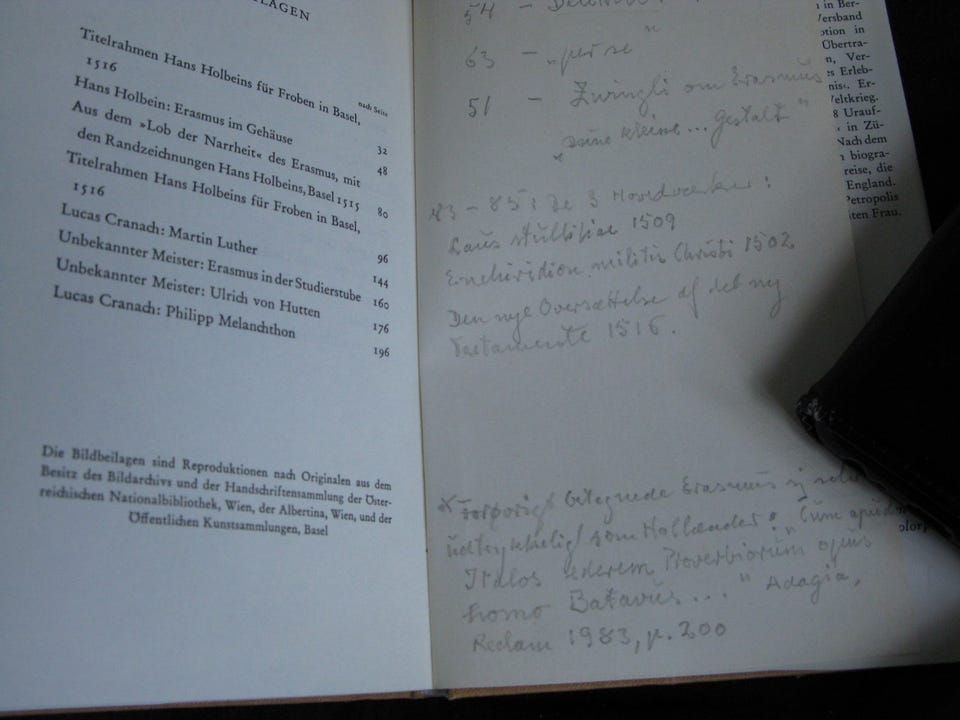 LAGEN
nach Seite
Titelrahmen Hans Holbeins für Froben in Basel,
1516
32
Hans Holbein: Erasmus im Gehäuse
48
Aus dem »Lob der Narrheit« des Erasmus, mit
den Randzeichnungen Hans Holbeins, Basel 1515
80
Titelrahmen Hans Holbeins für Froben in Basel,
1516
96
Lucas Cranach: Martin Luther
144
Unbekannter Meister: Erasmus in der Studierstube
160
Unbekannter Meister: Ulrich von Hutten
176
Lucas Cranach: Philipp Melanchthon
196
Die Bildbeilagen sind Reproduktionen nach Originalen aus dem
Besitz des Bildarchivs und der Handschriftensammlung der Öster-
reichischen Nationalbibliothek, Wien, der Albertina, Wien, und der
Öffentlichen Kunstsammlungen, Basel
54 –
63 – „per se"
51 – Zwingli om Erasmus
„Deine kleine... Gestalt"
83–85: De 3 Hovedværker:
Laus stultitiae 1509
Enchiridion militis Christi 1502
Den nye Oversættelse af det ny
Testamente 1516.
betegnede Erasmus sig selv
udtrykkeligt som Hollænder: "Cum apud
Italos ederem Proverbiorum opus
homo Batavus..." Adagia,
Reclam 1983, p. 200
in Ber-
Versband
otion in
Übertra-
n, Ver-
s Erleb-
nis«. Er-
Weltkrieg.
8 Urauf-
in Zü-
Nach dem
biogra-
reise, die
England.
Petropolis
ten Frau.